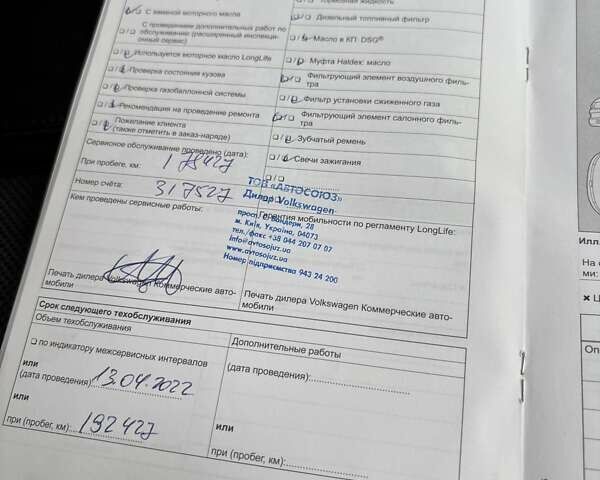 □/□ Тормозная жидкость
С заменой моторного масла
Дизельный топливный фильтр
С проведением дополнительных работ по
обслуживанию (расширенный инспекци-
онный сервис)
Масло в КП: DSG®
Используется моторное масло LongLife
Муфта Haldex: масло
Проверка состояния кузова
Фильтрующий элемент воздушного филь-
тра
Проверка газобаллонной системы
Фильтр установки сжиженного газа
Рекомендация на проведение ремонта
Фильтрующий элемент салонного филь-
тра
Пожелание клиента
(также отметить в заказ-наряде)
Зубчатый ремень
Сервисное обслуживание проведено (дата):
Свечи зажигания
При пробеге, км: 178427
□/□
Номер счёта: 317527
ТОВ «АВТОСОЮЗ»
Дилер Volkswagen
Кем проведены сервисные работы:
Гарантия мобильности по регламенту LongLife:
просп. С. Бандери, 28
м. Київ, Україна, 04073
тел./факс +38 044 207 07 07
info@avtosojuz.ua
www.avtosojuz.ua
Номер підприємства 943 24 200
Печать дилера Volkswagen Коммерческие авто-
мобили
Печать дилера Volkswagen Коммерческие авто-
мобили
Срок следующего техобслуживания
Объем техобслуживания
Дополнительные работы
□ по индикатору межсервисных интервалов
или
(дата проведения): 13.04.2022
(дата проведения):
или
или
при (пробег, км): 192427
при (пробег, км):
Илл.
На с
ми:
Оп